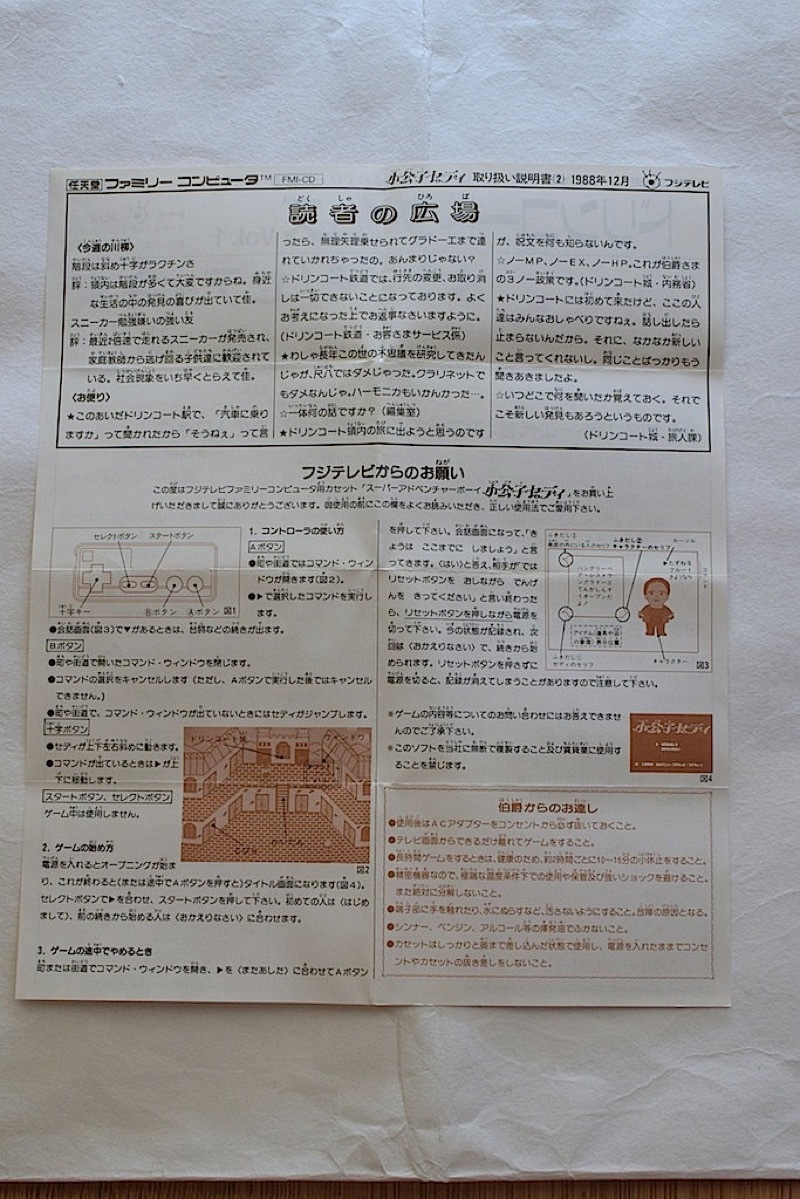 任天堂 ファミリー コンピュータ™ FMI-CD 小公子セディ 取り扱い説明書(2) 1988年12月 フジテレビ
読者の広場
〈今週の川柳〉
階段は斜め十字がラクチンさ
評：領内は階段が多くて大変ですからね。身近
な生活の中の発見の喜びが出ていて佳。
スニーカー勉強嫌いの強い友
評：最近2倍速で走れるスニーカーが発売され、
家庭教師から逃げ回る子供達に歓迎されて
いる。社会現象をいち早くとらえて佳。
〈お便り〉
★このあいだドリンコート駅で、「汽車に乗り
ますか」って聞かれたから「そうねぇ」って言
ったら、無理矢理乗せられてグラドーエまで連
れていかれちゃったの。あんまりじゃない？
☆ドリンコート鉄道では、行先の変更、お取り消
しは一切できないことになっております。よく
お考えになった上でお返事なさいますように。
（ドリンコート鉄道・お客さまサービス係）
★わしゃ長年この世の不思議を研究してきたん
じゃが、尺八ではダメじゃった。クラリネットで
もダメなんじゃ。ハーモニカもいかんかった…。
☆一体何の話ですか？（編集室）
★ドリンコート領内の旅に出ようと思うのです
が、呪文を何も知らないんです。
☆ノーMP、ノーEX、ノーHP。これが伯爵さま
の3ノー政策です。（ドリンコート城・内務省）
★ドリンコートには初めて来たけど、ここの人
達はみんなおしゃべりですねぇ。話し出したら
止まらないんだから。それに、なかなか新しい
こと言ってくれないし。同じことばっかりもう
聞きあきましたよ。
☆いつどこで何を聞いたか覚えておく。それで
こそ新しい発見もあろうというものです。
（ドリンコート城・旅人課）
フジテレビからのお願い
この度はフジテレビファミリーコンピュータ用カセット「スーパーアドベンチャーボーイ 小公子セディ」をお買い上
げいただきまして誠にありがとうございます。御使用の前にこの欄をよくお読みいただき、正しい使用法でご愛用下さい。
セレクトボタン スタートボタン
十字キー Ⓑボタン Ⓐボタン 図1
1. コントローラの使い方
Aボタン
●町や街道ではコマンド・ウィン
ドウが開きます(図2)。
●▶で選択したコマンドを実行し
ます。
●会話画面(図3)で▼があるときは、台詞などの続きが出ます。
Bボタン
●町や街道で開いたコマンド・ウィンドウを閉じます。
●コマンドの選択をキャンセルします（ただし、Aボタンで実行した後ではキャンセル
できません。）
●町や街道で、コマンド・ウィンドウが出ていないときにはセディがジャンプします。
十字ボタン
●セディが上下左右斜めに動きます。
●コマンドが出ているときは▶が上
下に移動します。
スタートボタン、セレクトボタン
ゲーム中は使用しません。
ドリンコート城 ウィンドウ
セディ かいだん
図2
2. ゲームの始め方
電源を入れるとオープニングが始ま
り、これが終わると(または途中でAボタンを押すと)タイトル画面になります(図4)。
セレクトボタンで▶を合わせ、スタートボタンを押して下さい。初めての人は〈はじめ
まして〉、前の続きから始める人は〈おかえりなさい〉に合わせます。
3. ゲームの途中でやめるとき
町または街道でコマンド・ウィンドウを開き、▶を〈またあした〉に合わせてAボタン
を押して下さい。会話画面になって、「き
ょうは ここまでに しましょう」と言
ってきます。〈はい〉と答え、相手が「では
リセットボタンを おしながら でんげ
んを きってください」と言い終わった
ら、リセットボタンを押しながら電源を
切って下さい。今の状態が記録され、次
回は〈おかえりなさい〉で、続きから始
められます。リセットボタンを押さずに
電源を切ると、記録が消えてしまうことがありますので注意して下さい。
ふきだし②
キャラクターのセリフ
カーソル
コマンド
ふきだし①
セディのセリフ
キャラクター
図3
※ゲームの内容等についてのお問い合わせにはお答えできませ
んのでご了承下さい。
※このソフトを当社に無断で複製すること及び賃貸業に使用す
ることを禁じます。
小公子セディ
図4
伯爵からのお達し
●使用後はACアダプターをコンセントから必ず抜いておくこと。
●テレビ画面からできるだけ離れてゲームをすること。
●長時間ゲームをするときは、健康のため、約2時間ごとに10〜15分の小休止をすること。
●精密機器なので、極端な温度条件下での使用や保管及び強いショックを避けること。
また絶対に分解しないこと。
●端子部に手を触れたり、水にぬらすなど、汚さないようにすること。故障の原因となる。
●シンナー、ベンジン、アルコール等の揮発油でふかないこと。
●カセットはしっかりと奥まで差し込んだ状態で使用し、電源を入れたままでコンセ
ントやカセットの抜き差しをしないこと。